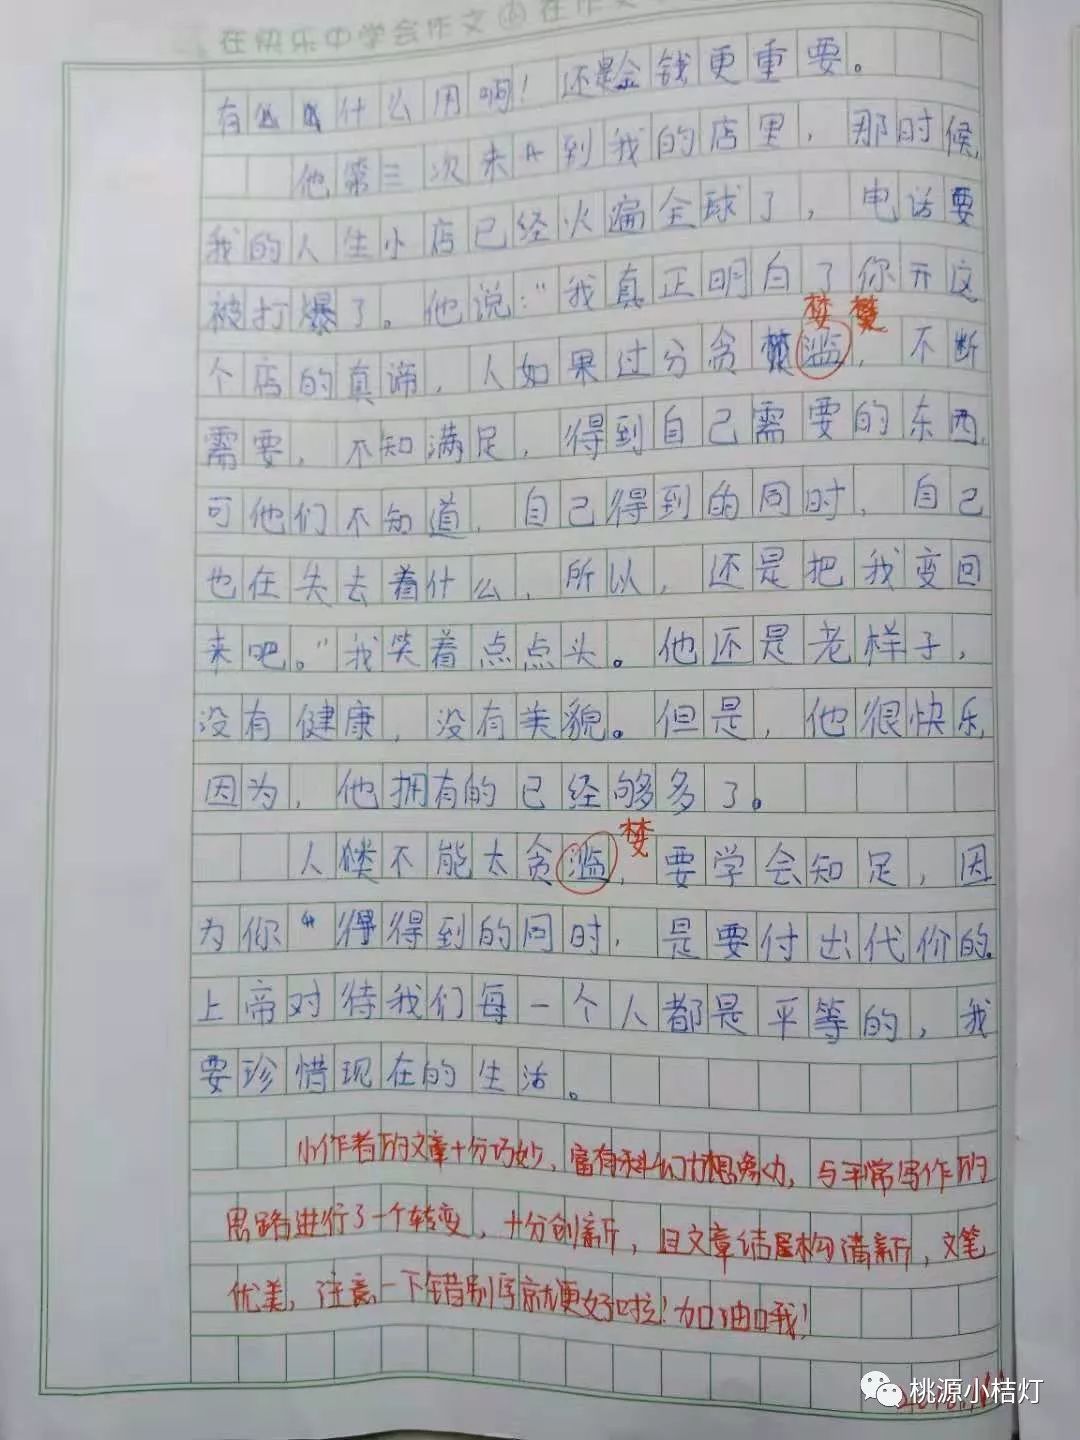 在快乐中学会作文
有什么用啊！还是金钱更重要。
他第三次来到我的店里，那时候，
我的人生小店已经火遍全球了，电话要
被打爆了。他说：“我真正明白了你开这
婪
个店的真谛，人如果过分贪滥，不断
需要，不知满足，得到自己需要的东西，
可他们不知道，自己得到的同时，自己
也在失去着什么，所以，还是把我变回
来吧。”我笑着点点头。他还是老样子，
没有健康，没有美貌。但是，他很快乐，
因为，他拥有的已经够多了。
婪
人类不能太贪滥，要学会知足，因
为你得到的同时，是要付出代价的。
上帝对待我们每一个人都是平等的，我
要珍惜现在的生活。
小作者的文章十分巧妙，富有科幻想象力，与平常写作的
思路进行了一个转变，十分创新，且文章结构清新，文笔
优美，注意一下错别字就更好啦！加油哦！
桃源小桔灯